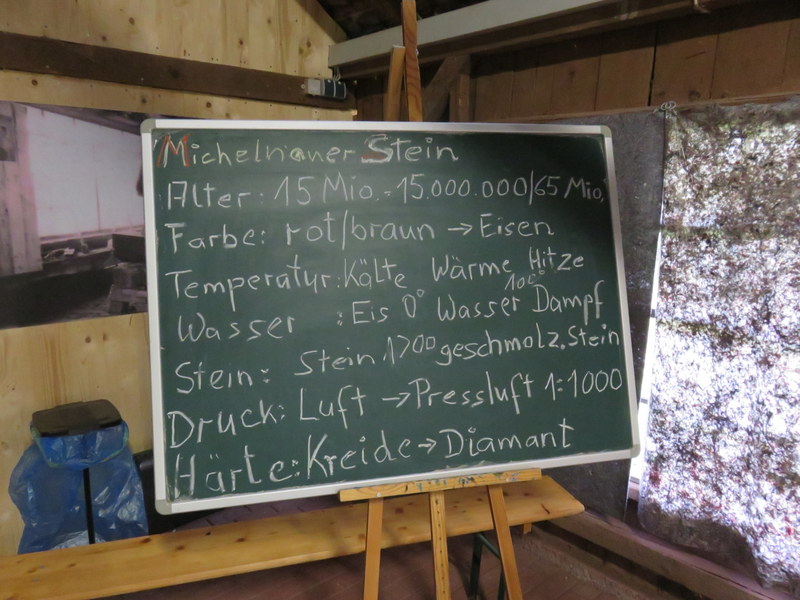 Michelnauer Stein
Alter: 15 Mio. = 15.000.000/65 Mio.
Farbe: rot/braun → Eisen
Temperatur: Kälte Wärme Hitze
Wasser : Eis 0° Wasser 100° Dampf
Stein: Stein geschmolz. Stein
Druck: Luft → Pressluft 1:1000
Härte: Kreide → Diamant